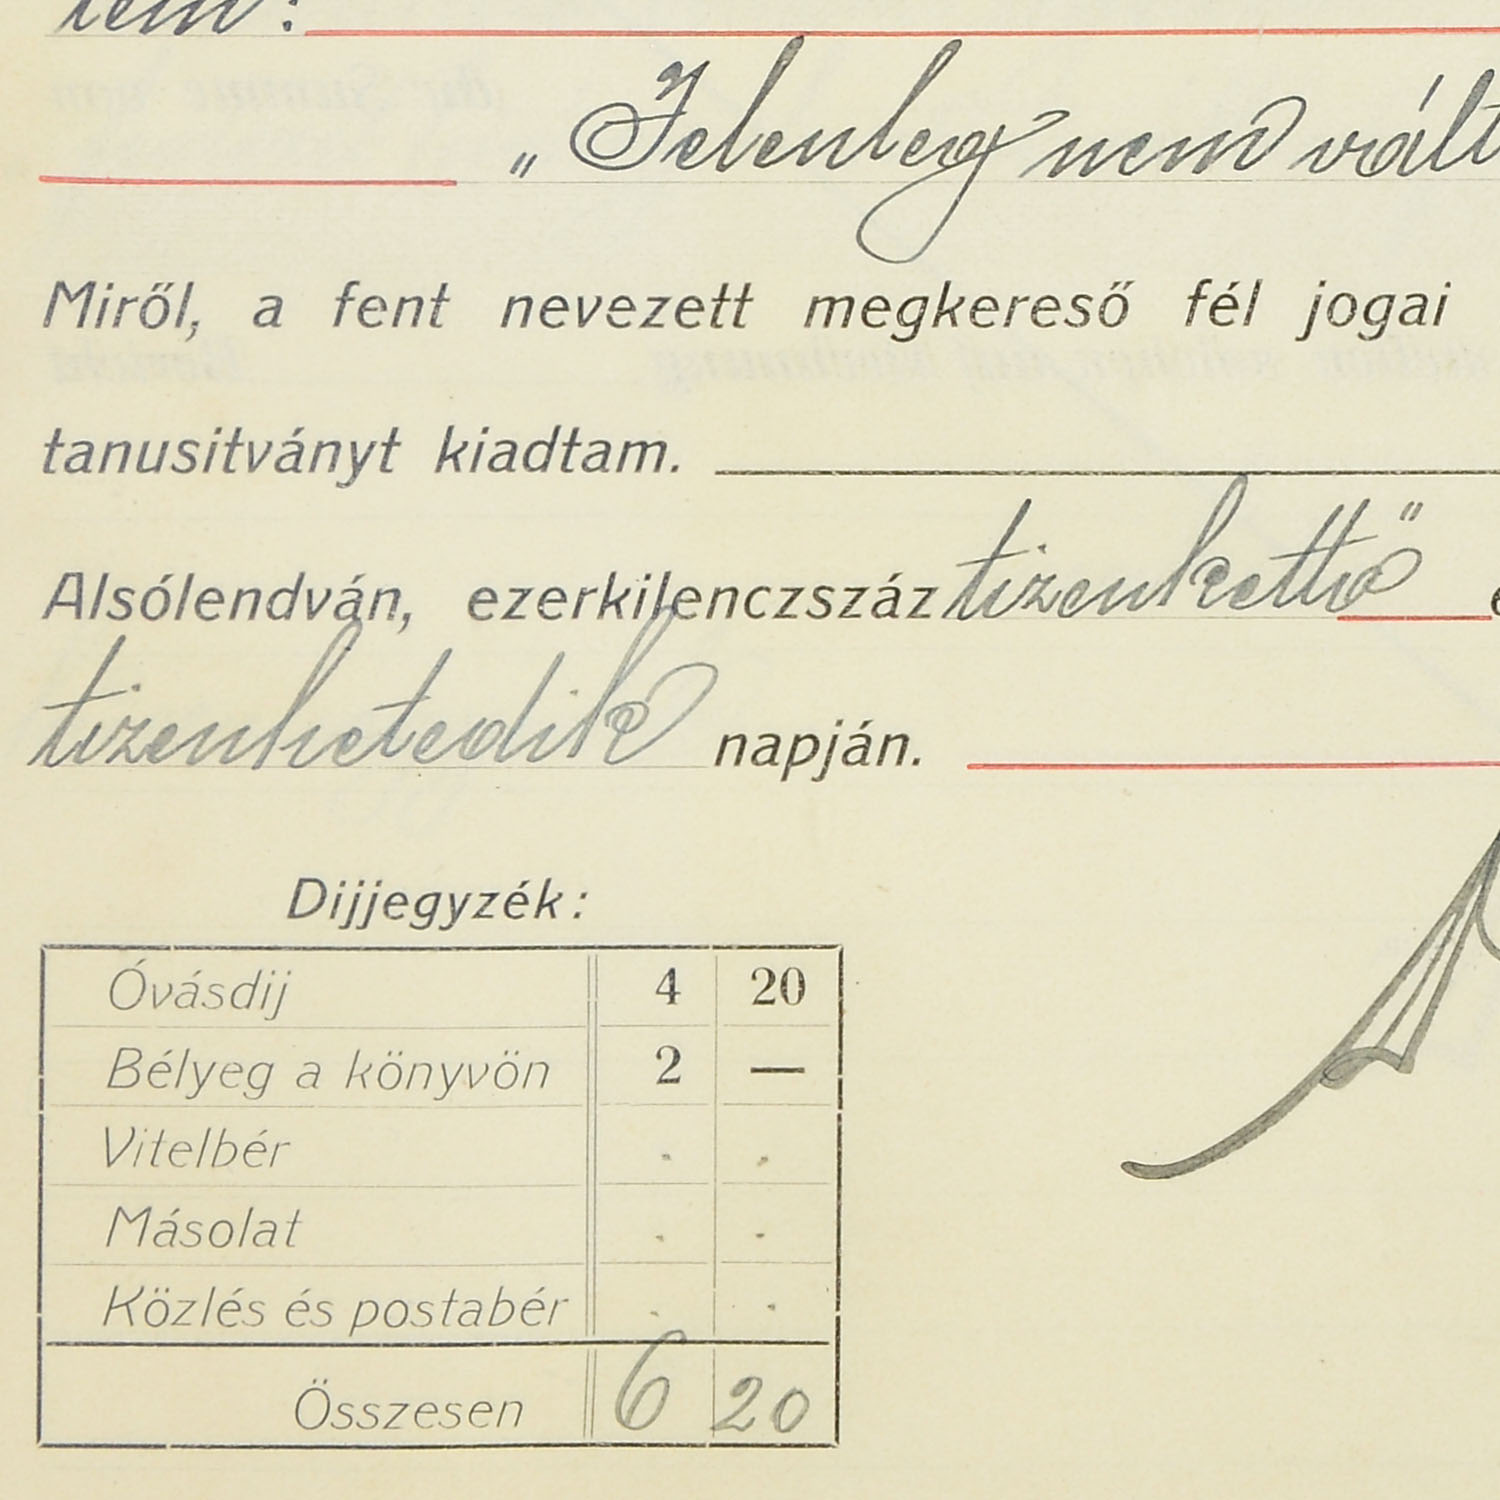 tem:
„Jelenleg nem vált
Miről, a fent nevezett megkereső fél jogai
tanusitványt kiadtam.
Alsólendván, ezerkilenczszáz tizenkettő
tizenhetedik napján.
Dijjegyzék:
Óvásdij 4 20
Bélyeg a könyvön 2 —
Vitelbér . .
Másolat . .
Közlés és postabér . .
Összesen 6 20